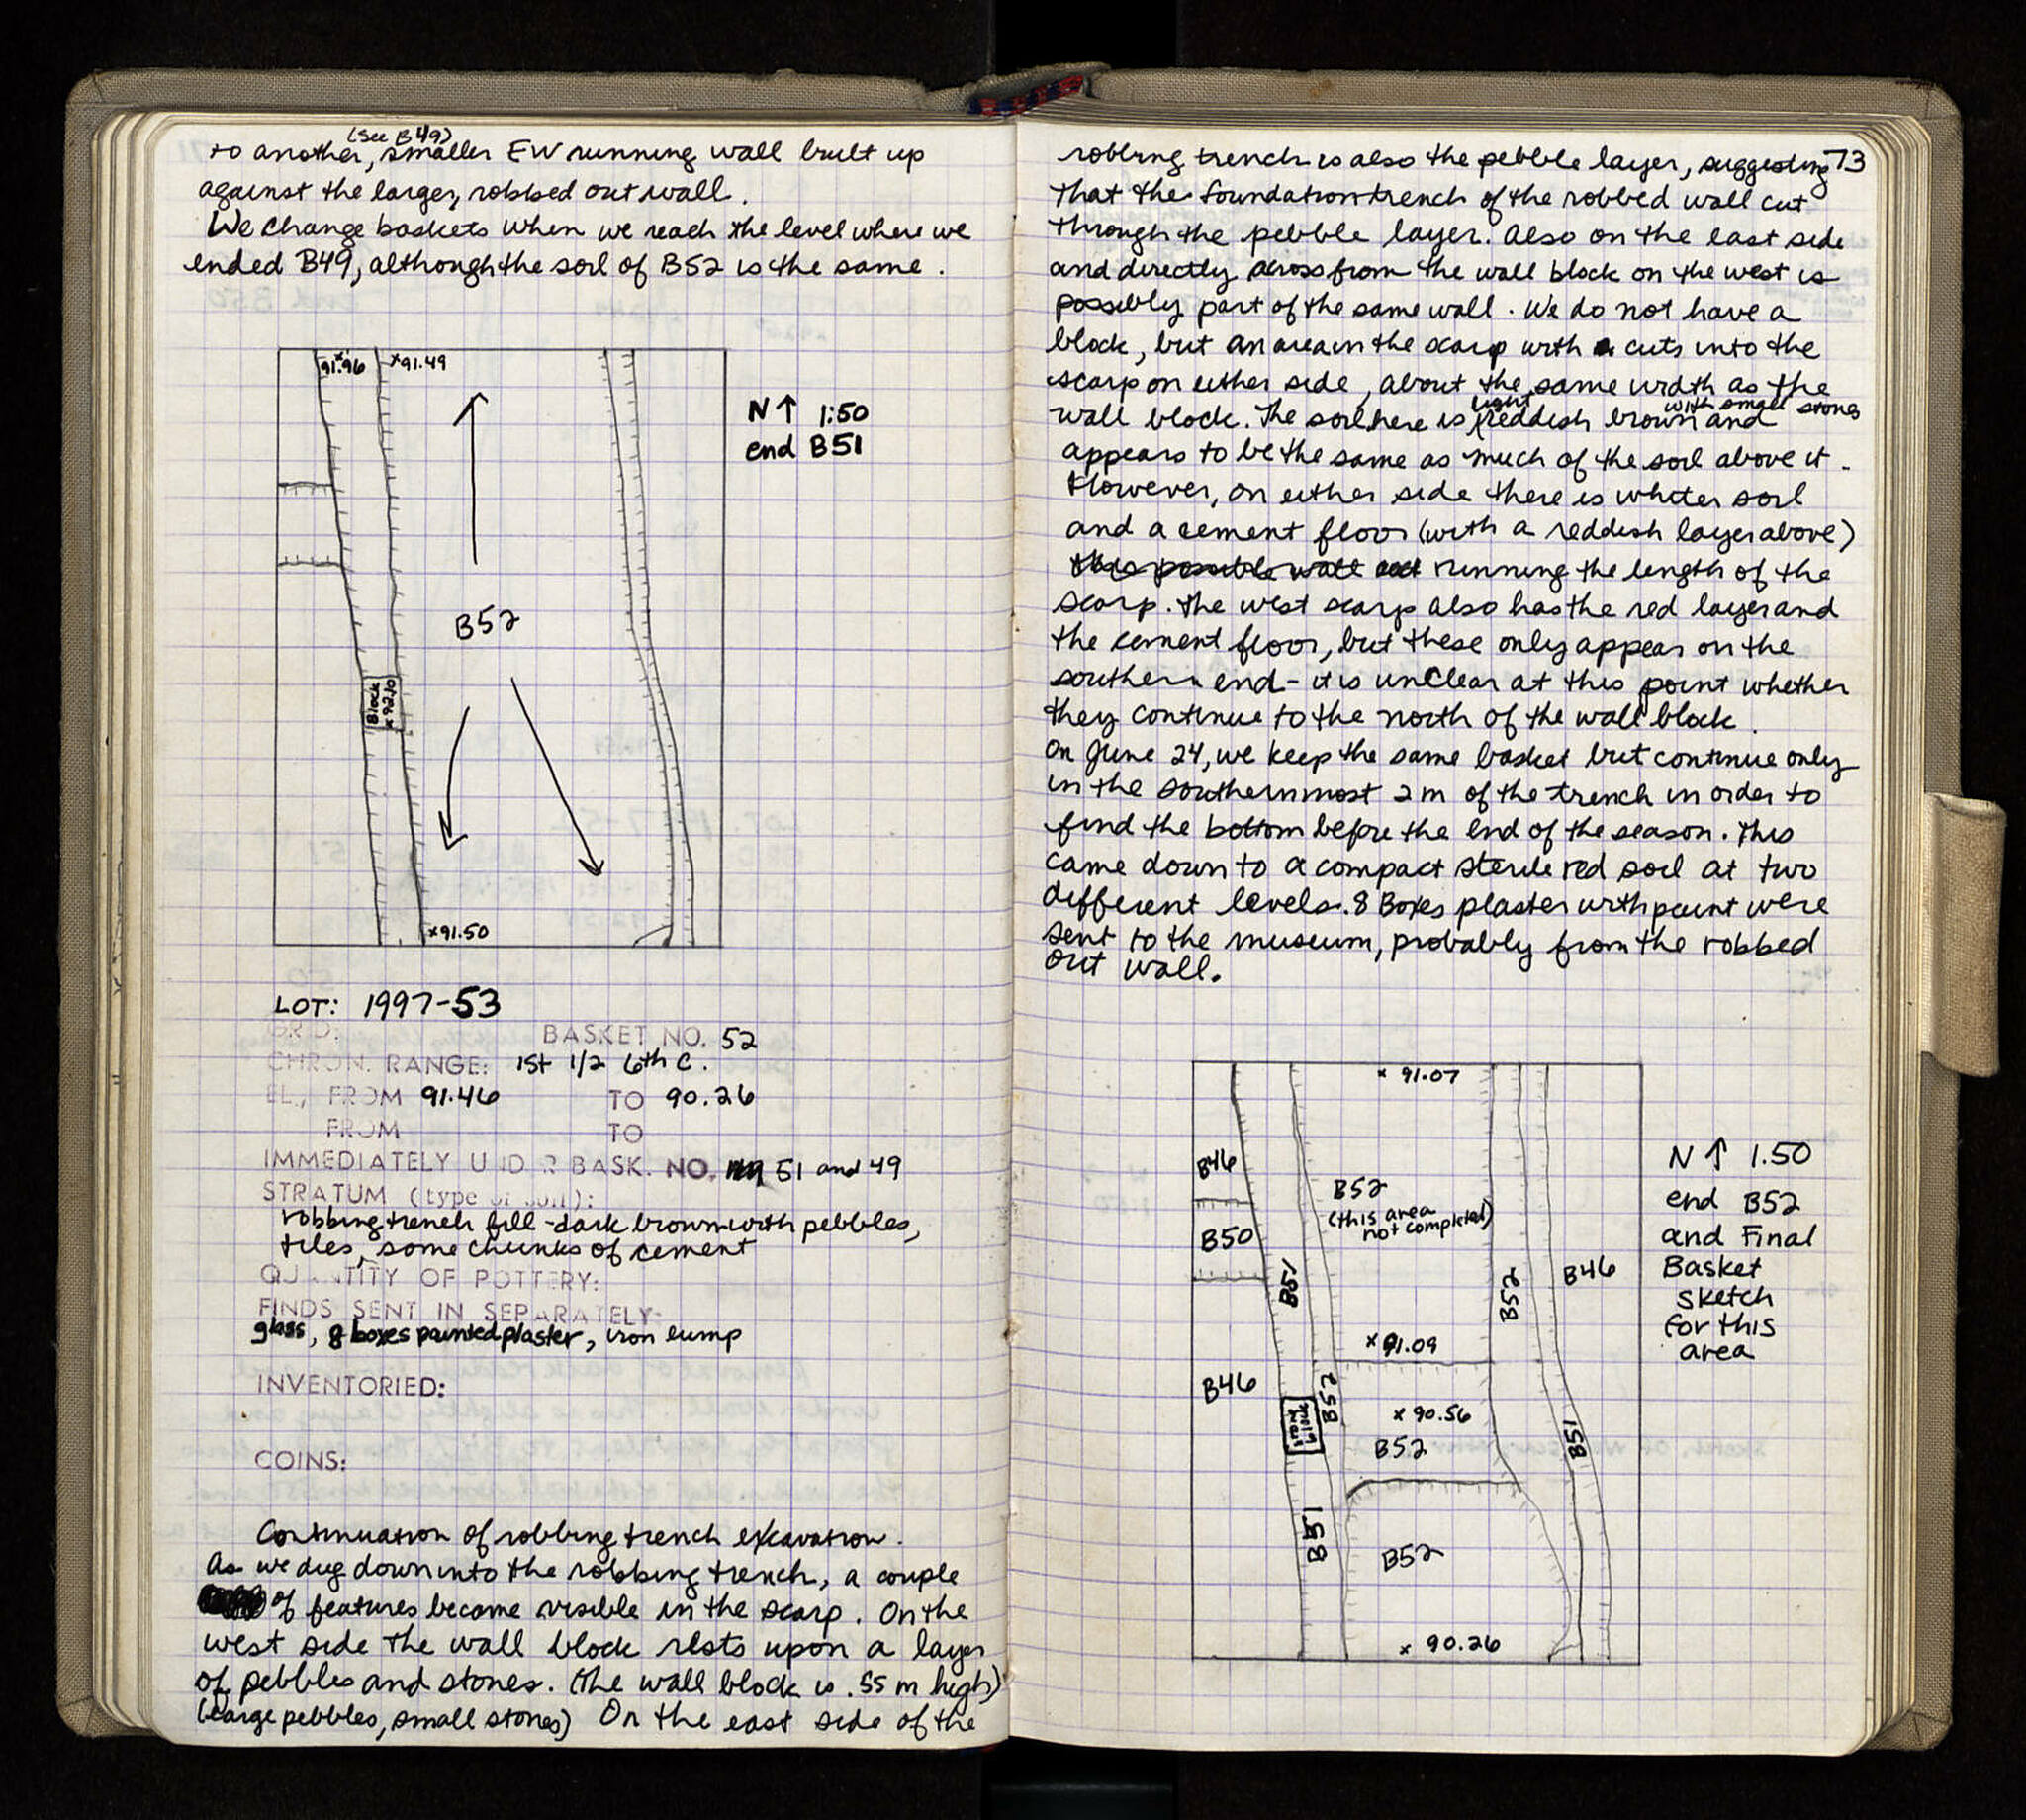 (See B49)
to another, smaller EW running wall built up
against the larger, robbed out wall.
We change baskets when we reach the level where we
ended B49, although the soil of B52 is the same.
x
91.96
x91.49
N↑ 1:50
end B51
B52
Block
x 92.10
x91.50
LOT: 1997-53
GRID: BASKET NO. 52
CHRON. RANGE: 1st 1/2 6th C.
EL., FROM 91.46 TO 90.26
FROM TO
IMMEDIATELY UNDER BASK. NO. 51 and 49
STRATUM (type of soil):
robbing trench fill - dark brown with pebbles,
tiles, some chunks of cement
QUANTITY OF POTTERY:
FINDS SENT IN SEPARATELY:
glass, 8 boxes painted plaster, iron lump
INVENTORIED:
COINS:
Continuation of robbing trench excavation.
As we dug down into the robbing trench, a couple
of features became visible in the scarp. On the
west side the wall block rests upon a layer
of pebbles and stones. (The wall block is .55 m high)
(large pebbles, small stones) On the east side of the
73
robbing trench is also the pebble layer, suggesting
that the foundation trench of the robbed wall cut
through the pebble layer. Also on the east side
and directly across from the wall block on the west is
possibly part of the same wall. We do not have a
block, but an area in the scarp with cuts into the
scarp on either side, about the same width as the
light with small stones
wall block. The soil here is reddish brown and
appears to be the same as much of the soil above it.
However, on either side there is whiter soil
and a cement floor (with a reddish layer above)
this possible wall running the length of the
scarp. The west scarp also has the red layer and
the cement floor, but these only appear on the
southern end - it is unclear at this point whether
they continue to the north of the wall block.
On June 24, we keep the same basket but continue only
in the southernmost 2 m of the trench in order to
find the bottom before the end of the season. This
came down to a compact sterile red soil at two
different levels. 8 Boxes plaster with paint were
sent to the museum, probably from the robbed
out wall.
x 91.07
B46
B52
(this area
not completed)
B50
B51
B52
B46
x 91.09
B46
B52
x 90.56
B52
B51
B51
B52
x 90.26
N ↑ 1.50
end B52
and Final
Basket
sketch
for this
area